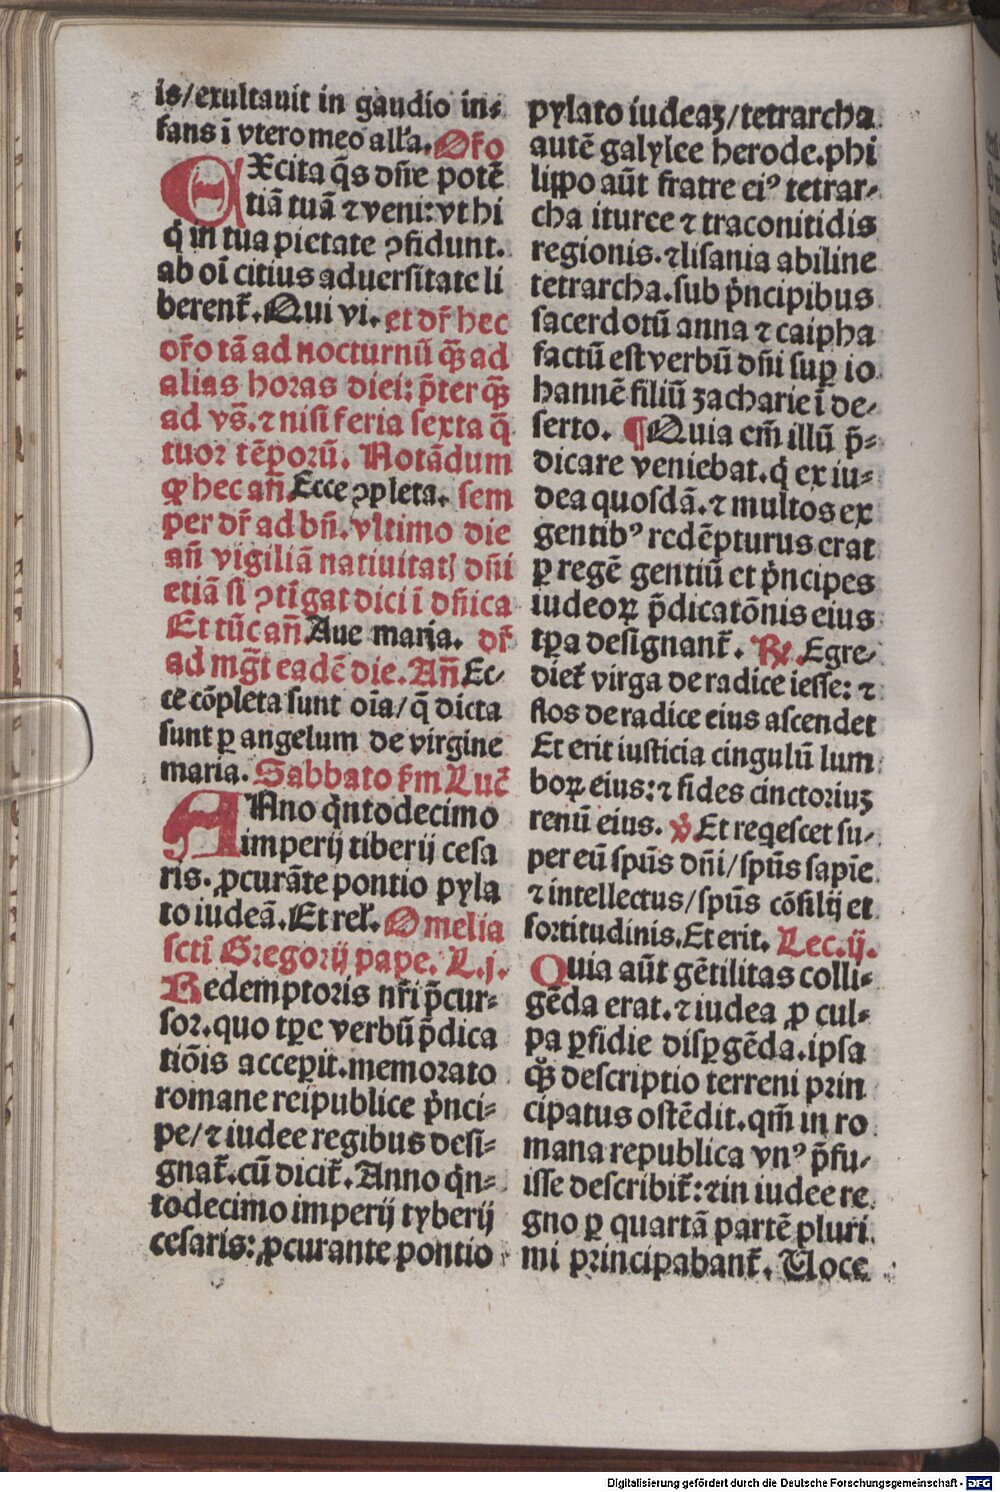 is/exultauit in gaudio in⸗
fans ī vtero meo all'a. Oŕo
EXcita q̄s dn̄e potē
tiā tuā ⁊ veni: vt hi
q̇ in tua pietate ꝯfidunt.
ab oī citius aduersitate li
berent᷑. Qui vi. et dr̄ hec
oŕo tā ad nocturnū q̄ꝫ ad
alias horas diei: p̄ter q̄ꝫ
ad vs̄. ⁊ nisi feria sexta q̄
tuor tēporū. Notādum
ꝙ hec an̄. Ecce ꝯpleta. sem
per dr̄ ad bn̄. vltimo die
an̄ vigiliā natiuitatꝭ dn̄i
etiā si ꝯtīgat dici ī dn̄ica
Et tūc an̄ Aue maria. dr̄
ad mḡt eadē die. An̄ Ec⸗
ce cōpleta sunt oīa/q̄ dicta
sunt ꝑ angelum de virgine
maria. Sabbato ẜm Luc̄
ANno q̇ntodecimo
imperij tiberij cesa
ris. ꝓcurāte pontio pyla
to iudeā. Et rel'. Omelia
scti Gregorij pape. L.j.
Redemptoris nr̄i p̄cur⸗
sor. quo tꝑe verbū p̄dica
tiōis accepit. memorato
romane reipublice ṗnci⸗
pe/⁊ iudee regibus desi⸗
gnat᷑. cū dicit᷑. Anno q̇n⸗
todecimo imperij tyberij
cesaris: ꝓcurante pontio
pylato iudeaꝫ/tetrarcha
autē galylee herode. phi
lippo aūt fratre eiꝰ tetrar⸗
cha ituree ⁊ traconitidis
regionis. ⁊ lisania abiline
tetrarcha. sub ṗncipibus
sacerdotū anna ⁊ caipha
factū est verbū dn̄i suꝑ io
hannē filiū zacharie ī de⸗
serto. ¶ Quia em̄ illū p̄⸗
dicare veniebat. q̇ ex iu⸗
dea quosdā. ⁊ multos ex
gentibꝰ redēpturus erat
ꝑ regē gentiū et ṗncipes
iudeoꝝ p̄dicatōnis eius
tꝑa designant᷑. ℞. Egre⸗
diet᷑ virga de radice iesse: ⁊
flos de radice eius ascendet
Et erit iusticia cingulū lum
boꝝ eius: ⁊ fides cinctoriuꝫ
renū eius. ℣ Et reqescet su⸗
per eū spūs dn̄i/spūs sapīe
⁊ intellectus/spūs cōsilij et
fortitudinis. Et erit. Lec.ij.
Quia aūt gētilitas colli⸗
gēda erat. ⁊ iudea ꝓ cul⸗
pa ꝑfidie disꝑgēda. ipsa
q̄ꝫ descriptio terreni prin
cipatus ostēdit. qm̄ in ro
mana republica vnꝰ p̄fu⸗
isse describit᷑: ⁊ in iudee re
gno ꝑ quartā partē pluri
mi principabant᷑. Uoce
Digitalisierung gefördert durch die Deutsche Forschungsgemeinschaft - DFG